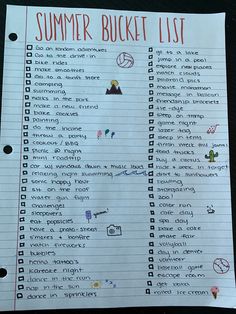 SUMMER BUCKET LIST
Go on random adventures
Go to the drive-in
bike rides
make smoothies
Go to a thrift store
camping
swimming
walks in the park
make a new friend
bake cookies
painting
do the incline
throw a party
cookout / BBQ
picnic @ night
mini roadtrip
car w/ windows down & music loud
relaxing night swimming
sonic happy hour
sit on the roof
water gun fight
challenges
sleepovers
eat popsicles
have a photo-shoot
s'mores & bonfire
watch fireworks
bubbles
henna tattoo's
karaoke night
dance in the rain
nap in the sun
dance in sprinklers
go to a lake
jump in a pool
explore new places
watch clouds
polaroid pics
movie marathon
message in balloon
friendship bracelets
tie dye
sleep on tramp
game night
laser tag
sleep in tents
food trucks
buy a cactus
hide & seek in target
drive to sunflowers
bowling
stargazing
zoo!
color run
cake day
spa day
bake a cake
state fair
volleyball
day in denver
baseball game
escape room
get boba
rolled ice cream